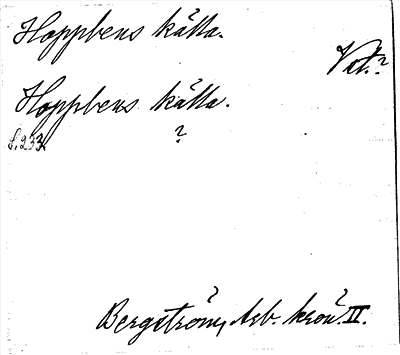 Hoppbens källa.
Vat.?
Hoppbens källa.
S. 233.
?
Bergström, Arb. krön. II.